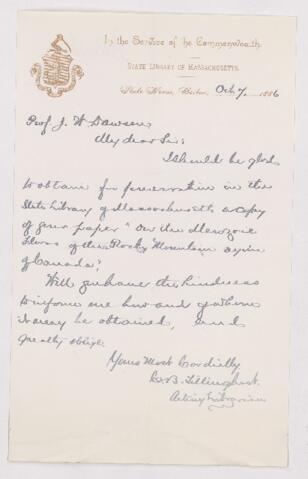 In the Service of the Commonwealth.
STATE LIBRARY OF MASSACHUSETTS.
State House, Boston, Oct 7, 1886
Prof. J. W. Dawson,
My dear Sir:
I should be glad
to obtain for preservation in the
State Library of Massachusetts a copy
of your paper "On the Mesozoic
Floras of the Rocky Mountain region
of Canada."
Will you have the kindness
to inform me how and of whom
it may be obtained, and
greatly oblige
Yours Most Cordially
C. B. Tillinghast.
Acting Librarian